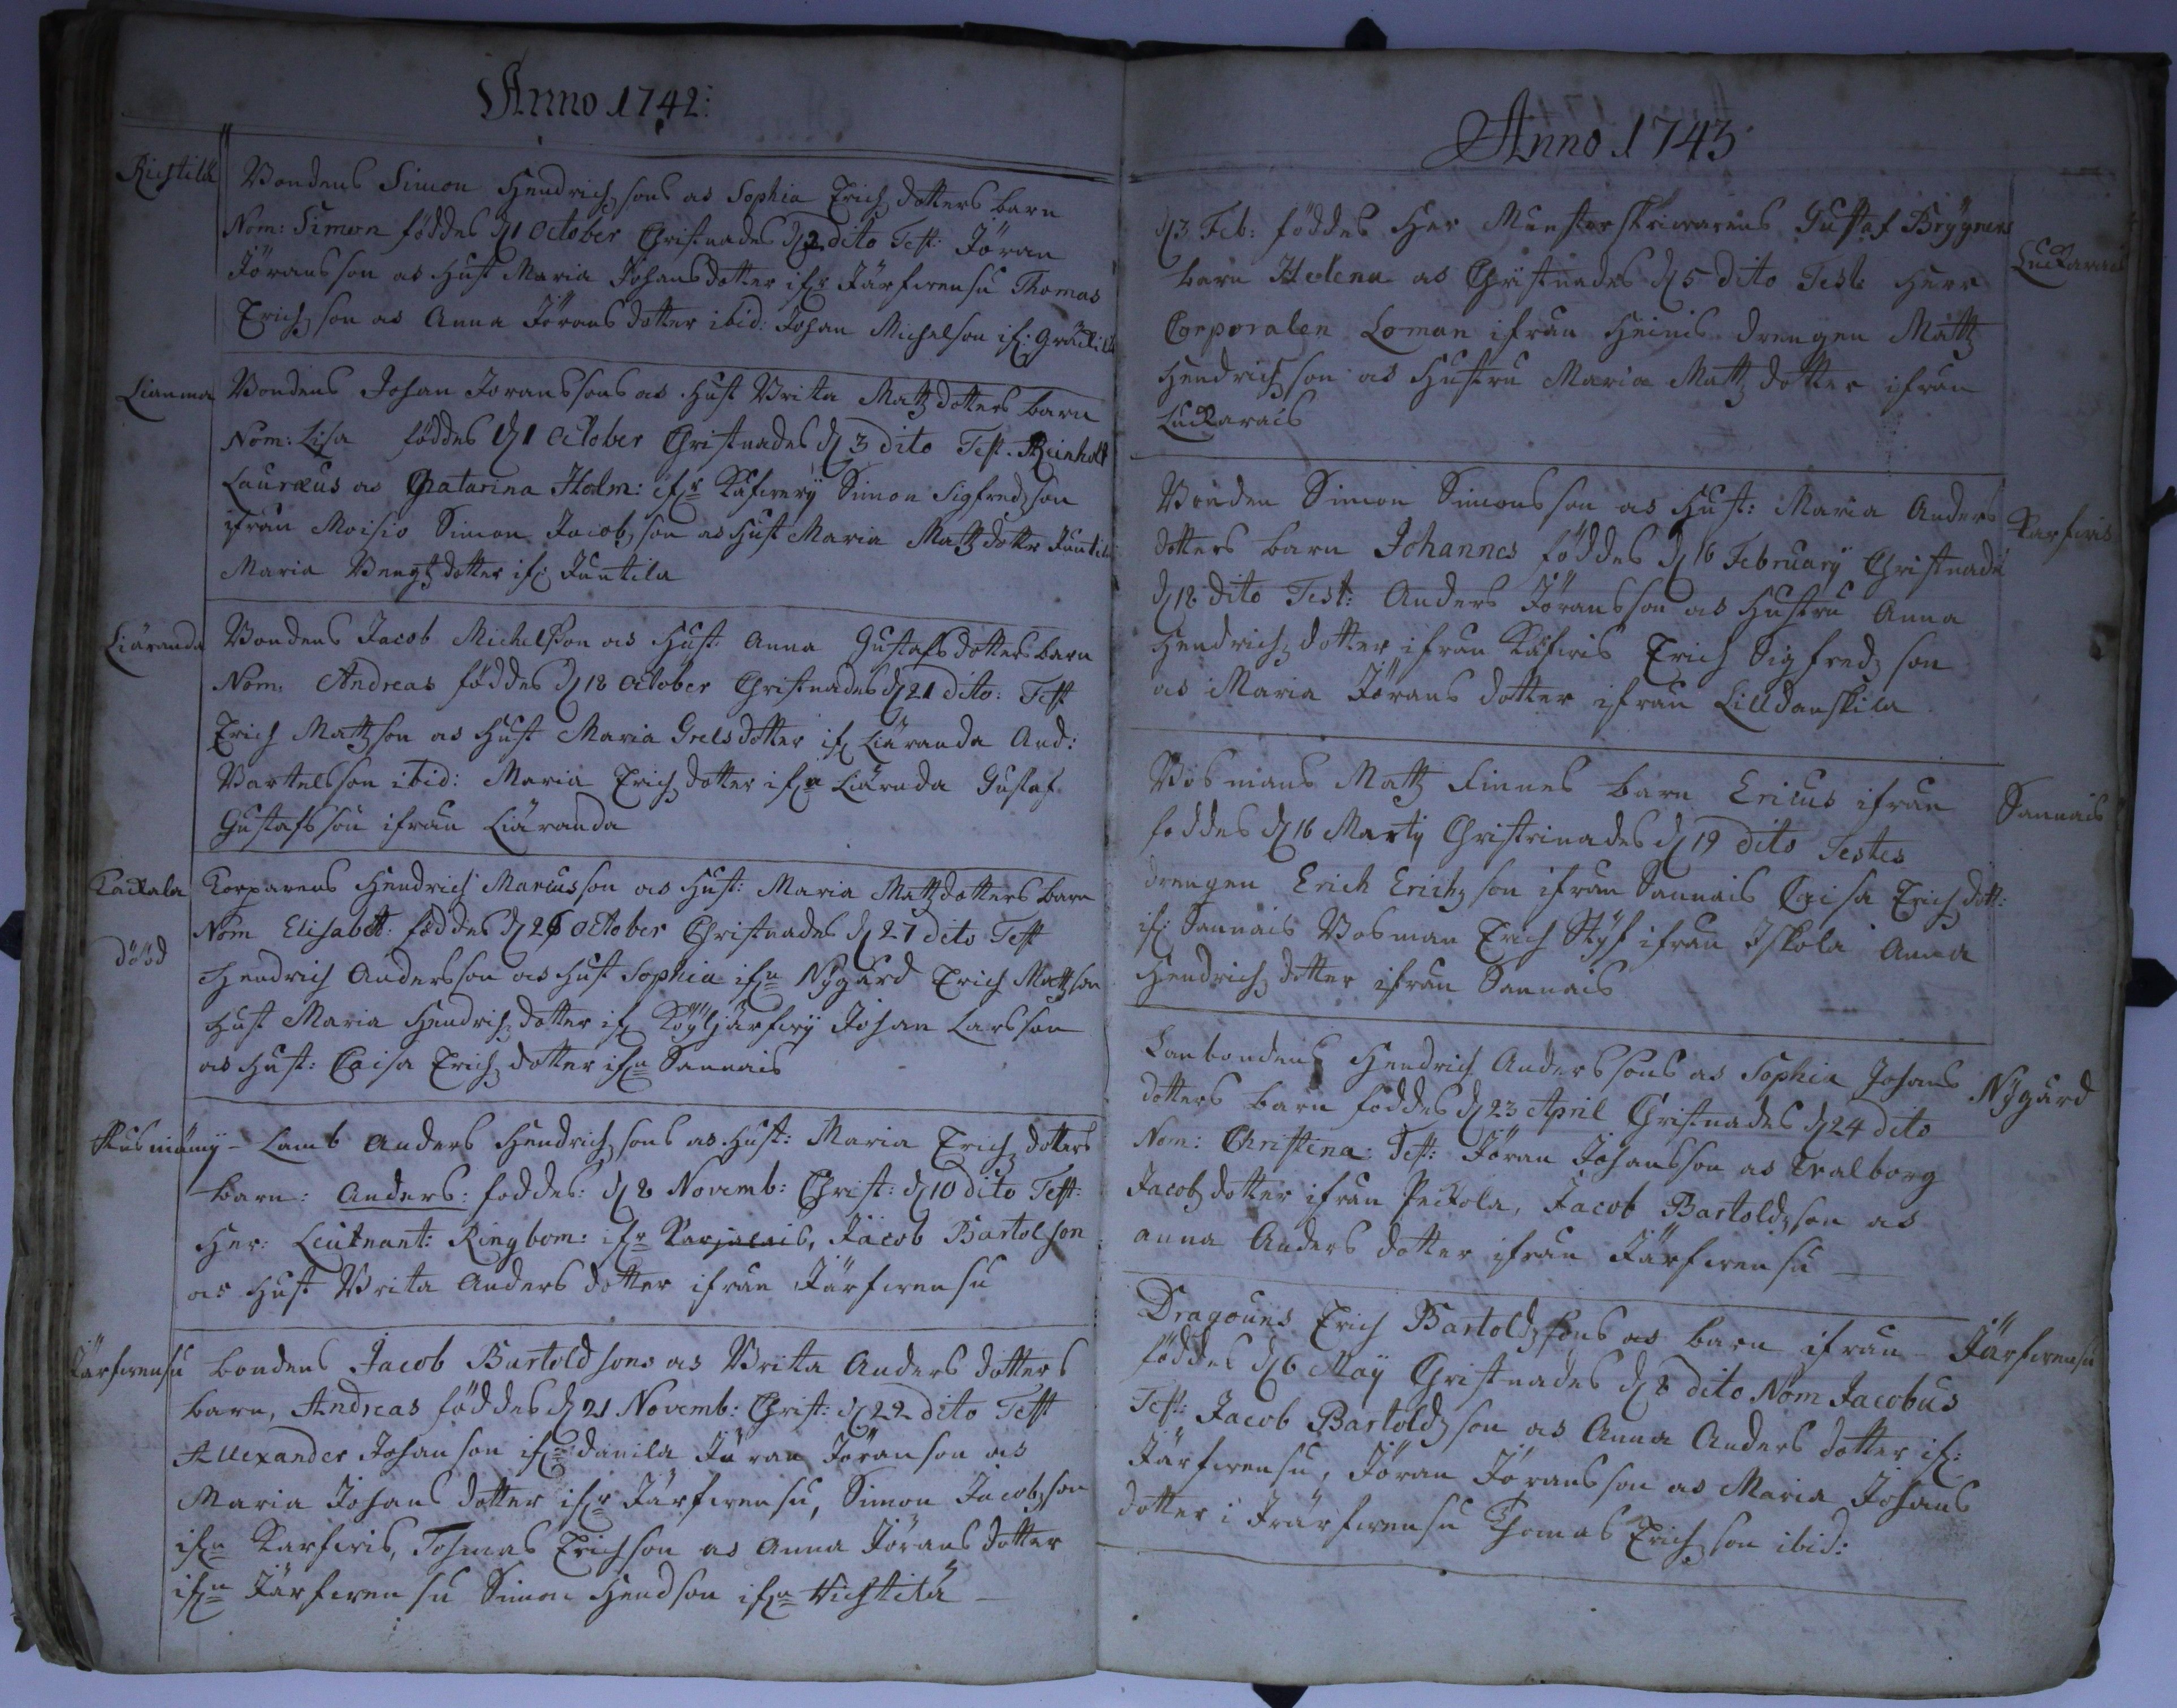 Anno 1742:
Ristilä
Bondens Simon Hendrichsons as Sophia Erichdotters barn
Nom: Simon föddes d 1 October Christnades d 2 dito Test: Jöran
Jöransson as Hust Maria Johansdotter ifr Järfwensu Thomas
Erichson as Anna Jöransdotter ibid: Johan Michelson if:
Bondens Johan Joranssons as Hust Brita Mattzdotters barn
Nom: Lisa föddes d 1 October Christnades d 3 dito Test. Reinholt
Lauræus as Chatarina Holm: ifr Simon Sigfredson
ifrån Moisio Simon Jacobson as Hust Maria Mattzdotter Juntila
Maria Bengtdotter if: Juntila
Liäranda
Bondens Jacob Michelson as Hust: Anna Gustafsdotters barn
Nom: Andreas föddes d 18 October Christnades d 21 dito: Test
Erich Mattzson as Hust Maria Grelsdotter if Liäranda And:
Bartelsson ibid: Maria Erichdotter ifn Liärnda Gustaf
Gustafsson ifrån Liäranda
Kackala
dööd
Korparens Hendrich Marcusson as Hust: Maria Mattzdotters barn
Nom Elisabet: föddes d 26 October Christnades d 27 dito Test
Hendrich Andersson as Hust Sophia ifn Nygård Erich Mattzson
Hust Maria Hendrichdotter if Köyljärfwy Johan Larsson
as Hust: Caisa Erichdotter ifn Sannais
Lamb Anders Hendrichsons as Hust: Maria Erichdotters
barn: Anders: foddes: d 8 Novemb: Christ: d 10 dito Test:
Her: Leutnant: Ringbom: ifr Karjalais, Jacob Bartolson
as Hust Brita Andersdotter ifrån Järfwensu
Järfwensu
bondens Jacob Bartoldsons as Brita Andersdotters
barn, Andreas föddes d 21 Novemb: Christ: d 22 dito Test
Allexander Johanson ifn danila Jöran Jöranson as
Maria Johansdotter ifr Järfwensu, Simon Jacobson
ifn Karfwis, Tohmas Erichson as Anna Jöransdotter
ifn Järfwensu Simon Hendson ifn
Anno 1743
d 3 Feb: föddes Her Munsterskrivarens Gustaf Brygners
barn Helena as Christnades d 5 dito Test: Herr
Corporalen Loman ifrån Heinis drengen Mattz
Hendrichson as Hustru Maria Mattzdotter ifrån
Luckarais
Luckarais
Bonden Simon Simonsson as Hust: Maria Anders
dotters barn Johannes föddes d 16 February Christnade
d 18 dito Test: Anders Jöransson as Hustru Anna
Hendrichdotter ifrån Kafwis Erich Sigfredson
as Maria Jöransdotter ifrån Lilldanskila
Karfwis
Bosmans Mattz Finnes barn Ericus ifrån
foddes d 16 Marty Christnades d 19 dito Testes
drengen Erich Erichson ifrån Sannais Caisa Erichdott:
if: Sannais Bosman Erich Styf ifrån Iskola Anna
Hendrichdotter ifrån Sannais
Sannais
Lanbondens Hendrich Anderssons as Sophia Johans
dotters barn foddes d 23 April Christnades d 24 dito
Nom: Christina: Test: Jöran Johansson as Walborg
Jacobdotter ifrån Peckola, Jacob Bartoldson as
anna Andersdotter ifrån Järfwensu
Nygård
Dragouns Erich Bartoldsons as barn ifrån - Järfwensu
föddes d 6 May Christnades d 8 dito Nom Jacobus
Test: Jacob Bartoldson as Anna Andersdotter if:
Järfwensu, Jöran Jöransson as Maria Johans
dotter i Järfwensu Thomas Erichson ibid: